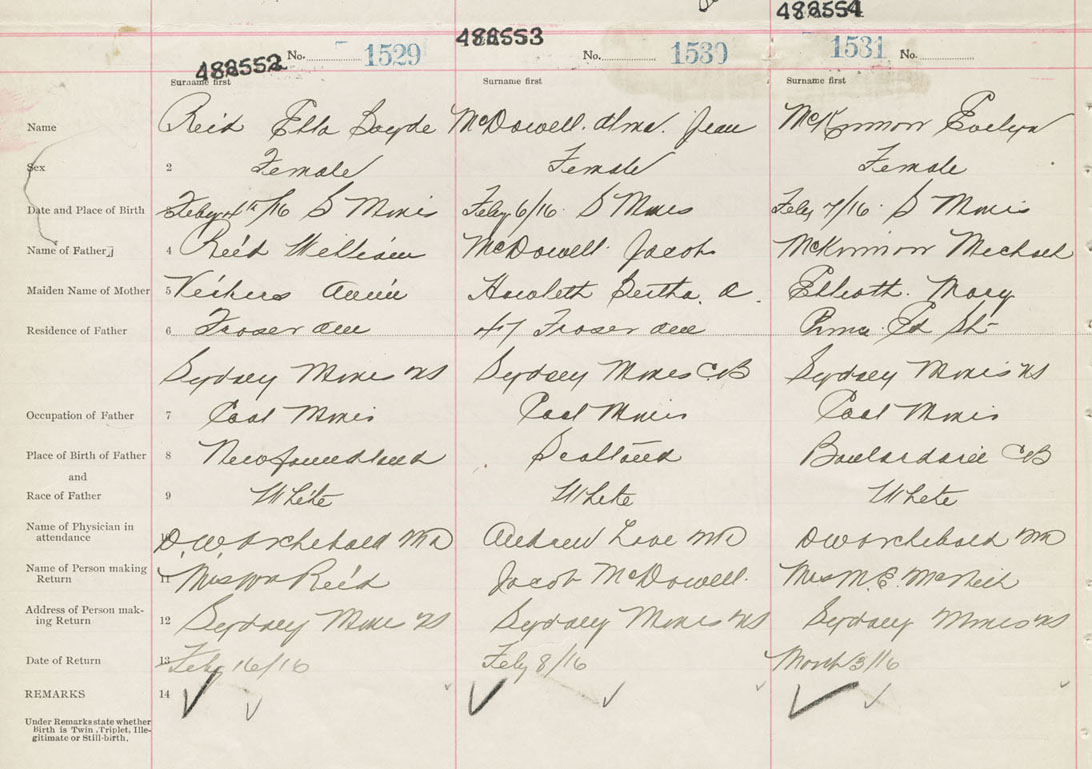 488554
488553
488552 No. 1529 No. 1530 1531 No.
Surname first Surname first Surname first
Name Reid Ella McDowell. Alma. Jean McKinnon Evelyn
Sex 2 Female Female Female
Date and Place of Birth Feby 4th/16 S Mines Feby 6/16. S Mines Feby 7/16. S Mines
Name of Father 4 Reid William McDowell. Jacob McKinnon Michael
Maiden Name of Mother 5 Vickers Annie Howleth Bertha. A. Elliott. Mary
Residence of Father 6 Fraser Ave 47 Fraser Ave
Sydney Mines NS Sydney Mines C.B Sydney Mines NS
Occupation of Father 7 Coal Miner Coal Miner Coal Miner
Place of Birth of Father 8 Newfoundland Scotland Boulardarie CB
and
Race of Father 9 White White White
Name of Physician in
attendance 10 D.W. Archibald MD Andrew Love MD DW Archibald MD
Name of Person making
Return 11 Mrs Wm Reid Jacob McDowell. Mrs M. E. McNeil
Address of Person mak-
ing Return 12 Sydney Mines NS Sydney Mines NS Sydney Mines NS
Date of Return 13 Feby 16/16 Feby 8/16 March 3/16
REMARKS 14
Under Remarks state whether
Birth is Twin, Triplet, Ille-
gitimate or Still-birth.